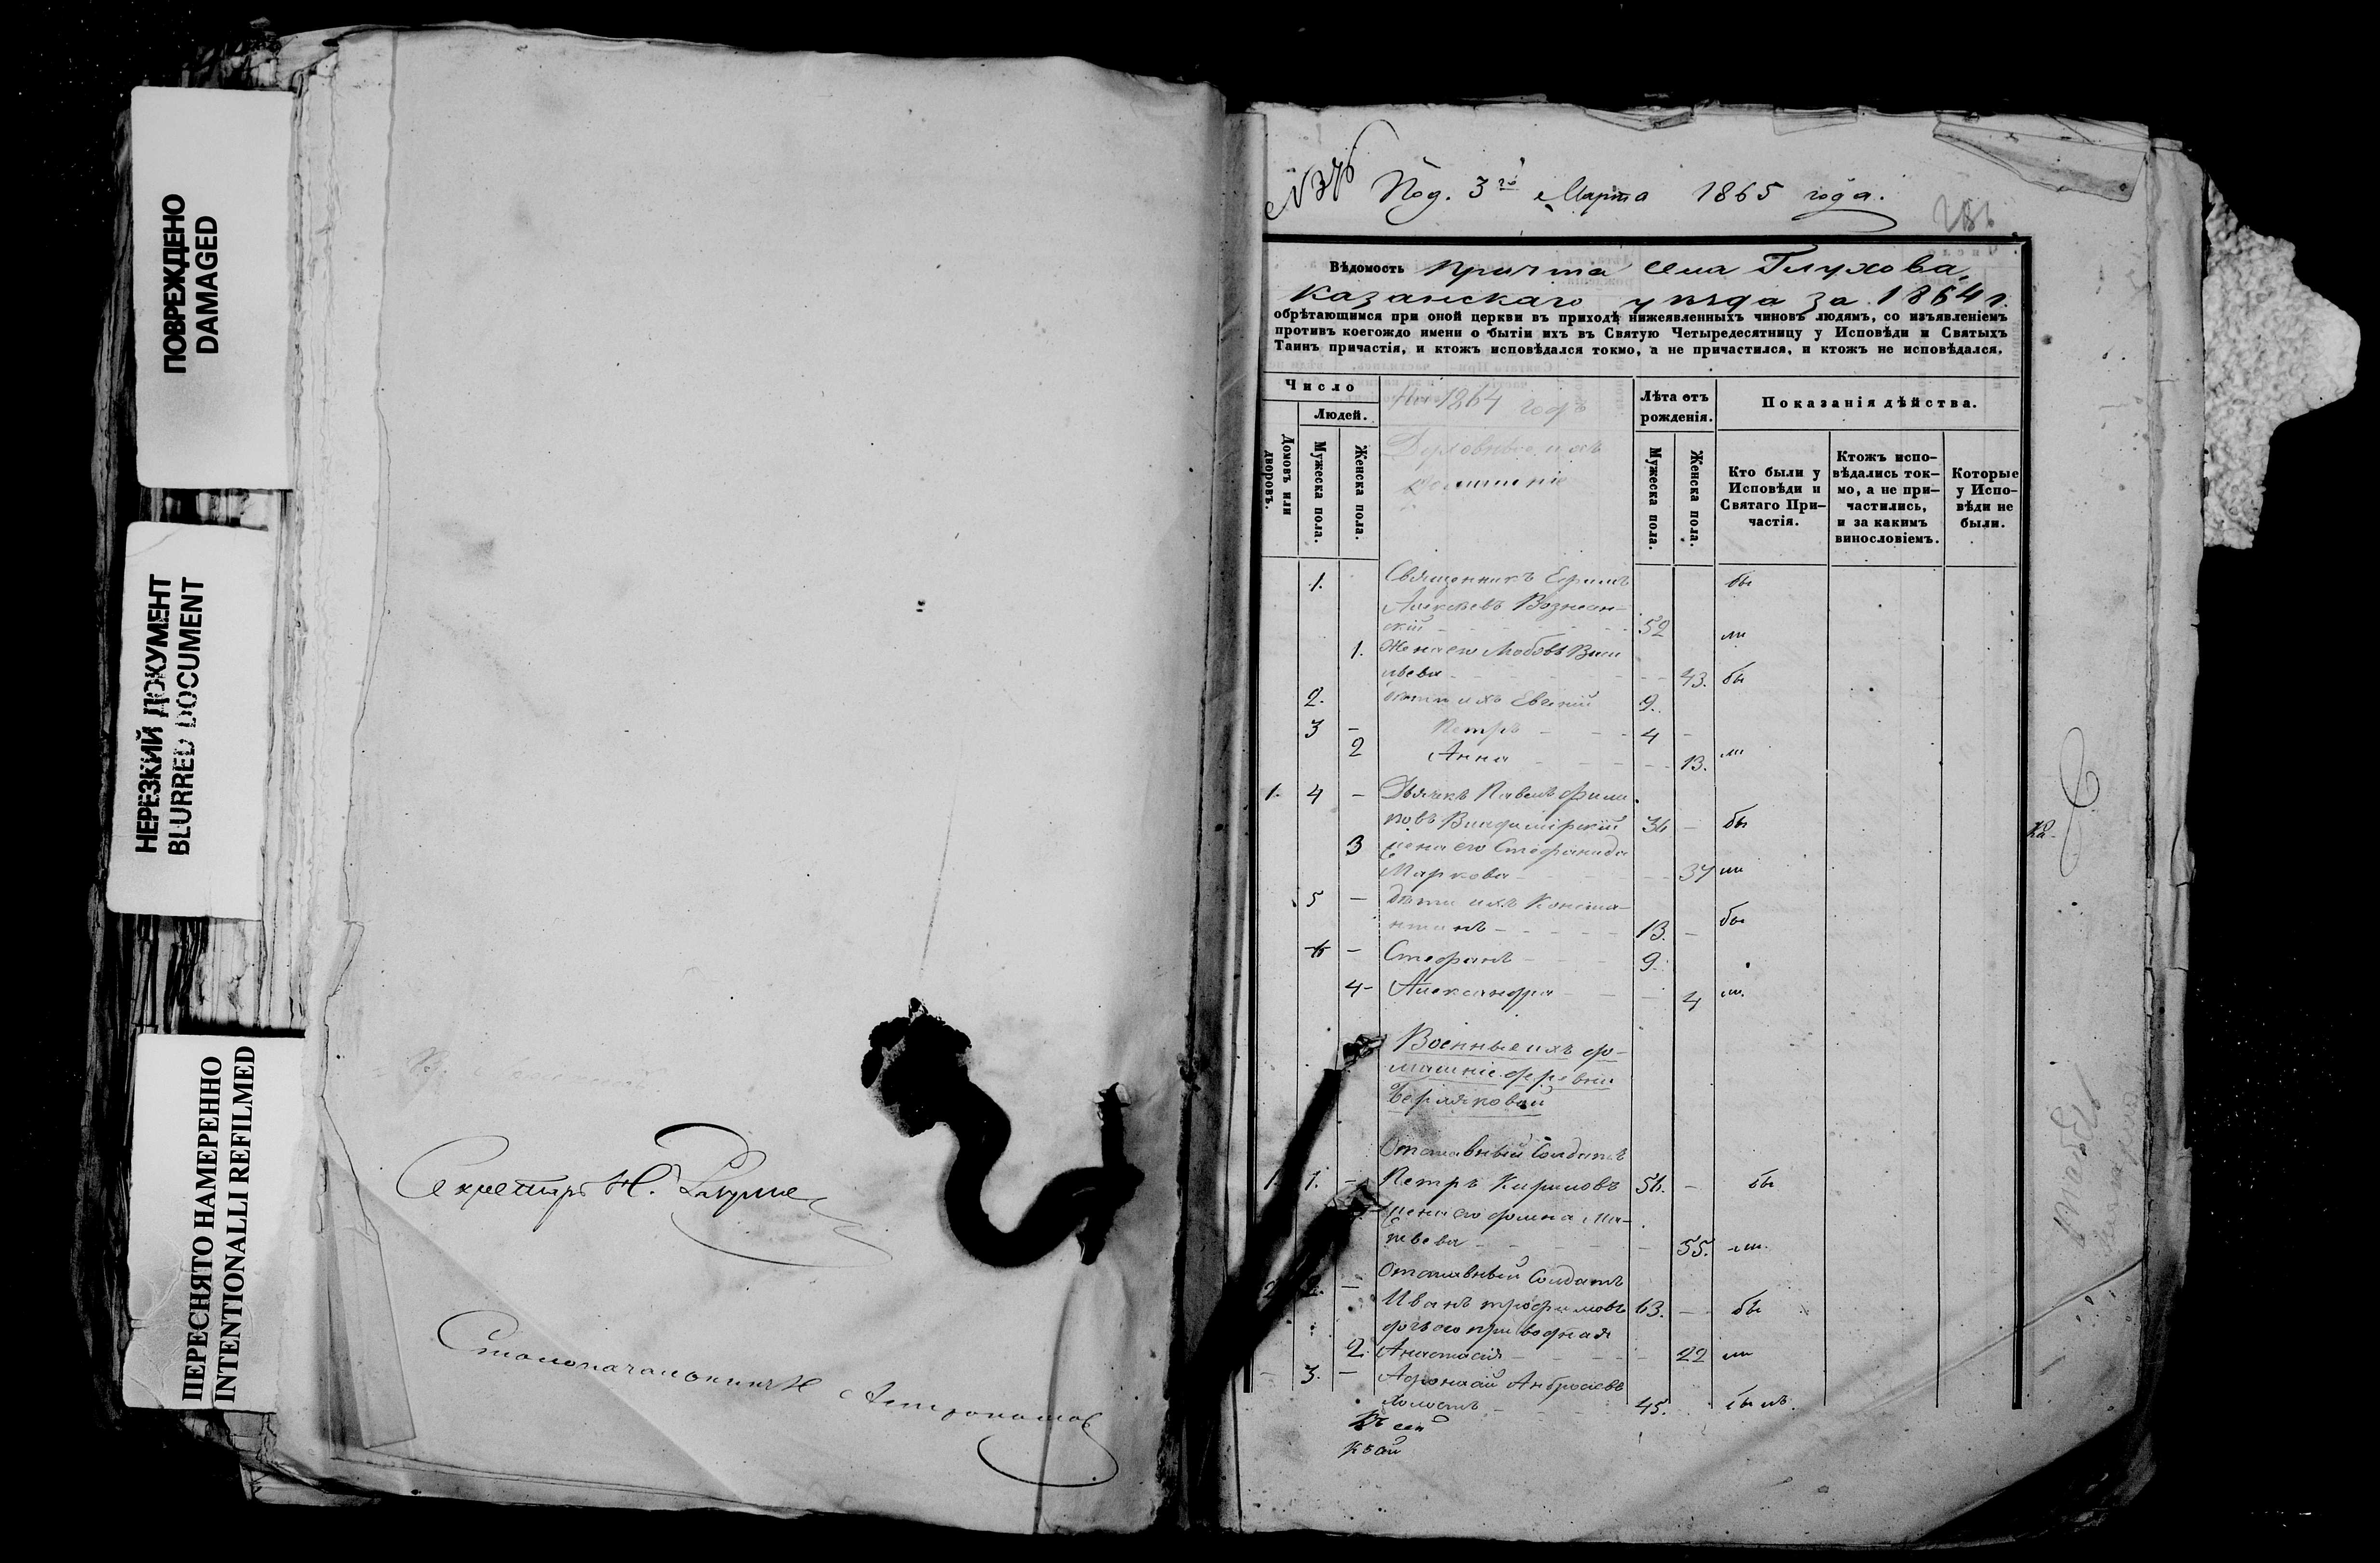 ПОВРЕЖДЕНО
DAMAGED
НЕРЕЗКИЙ ДОКУМЕНТ
BLURRED DOCUMENT
ПЕРЕСНЯТО НАМЕРЕННО
INTENTIONALLI REFILMED
Секретарь Н.
Столоначальникъ
Под. 3го Марта 1865 года.
Вѣдомость причта села Глухова,
Казанскаго уѣзда за 1864 г.
обрѣтающимся при оной церкви въ приходѣ нижеявленныхъ чиновъ людямъ, со изъявленіемъ
противъ коегождо имени о бытіи ихъ въ Святую Четыредесятницу у Исповѣди и Святыхъ
Таинъ причастія, и ктожъ исповѣдался токмо, а не причастился, и ктожъ не исповѣдался.
Число
Людей.
Домовъ или дворовъ.
Мужеска пола.
Женска пола.
1864 годъ
Духовные и ихъ
домашніе
Лѣта отъ
рожденія.
Мужеска пола.
Женска пола.
Показанія дѣйства.
Кто были у
Исповѣди и
Святаго При-
частія.
Ктожъ испо-
вѣдались ток-
мо, а не при-
частились,
и за какимъ
винословіемъ.
Которые
у Испо-
вѣди не
были.
1. Священникъ Ефимъ бы
Алексѣевъ Вознесен-
скій 52 ли
1. Жена его Любовь Васи
льева 43. бы
2. дѣти ихъ Евгеній 9.
3 - Петръ 4 -
2 Анна 13. ли
1. 4 - Дьячекъ Павелъ Филип
повъ Владимірскій 36 - бы
3 жена его Стефанида
Маркова 37 ли
5 - дѣти ихъ Конста-
нтинъ 13. - бы
6 - Стефанъ 9.
4 - Александра 4 ли.
Военные ихъ до-
машніе деревни
Отставный Солдатъ
1. 1. - Петръ Кириловъ 56. - бы
жена его Ма-
55. ли.
2. 2. - Отставный Солдатъ
Иванъ Трофимовъ 63. - бы
дочь его приводная
2. Анастасія 22 ли
- 3. -
Холостъ 45. былъ.
Къ сей